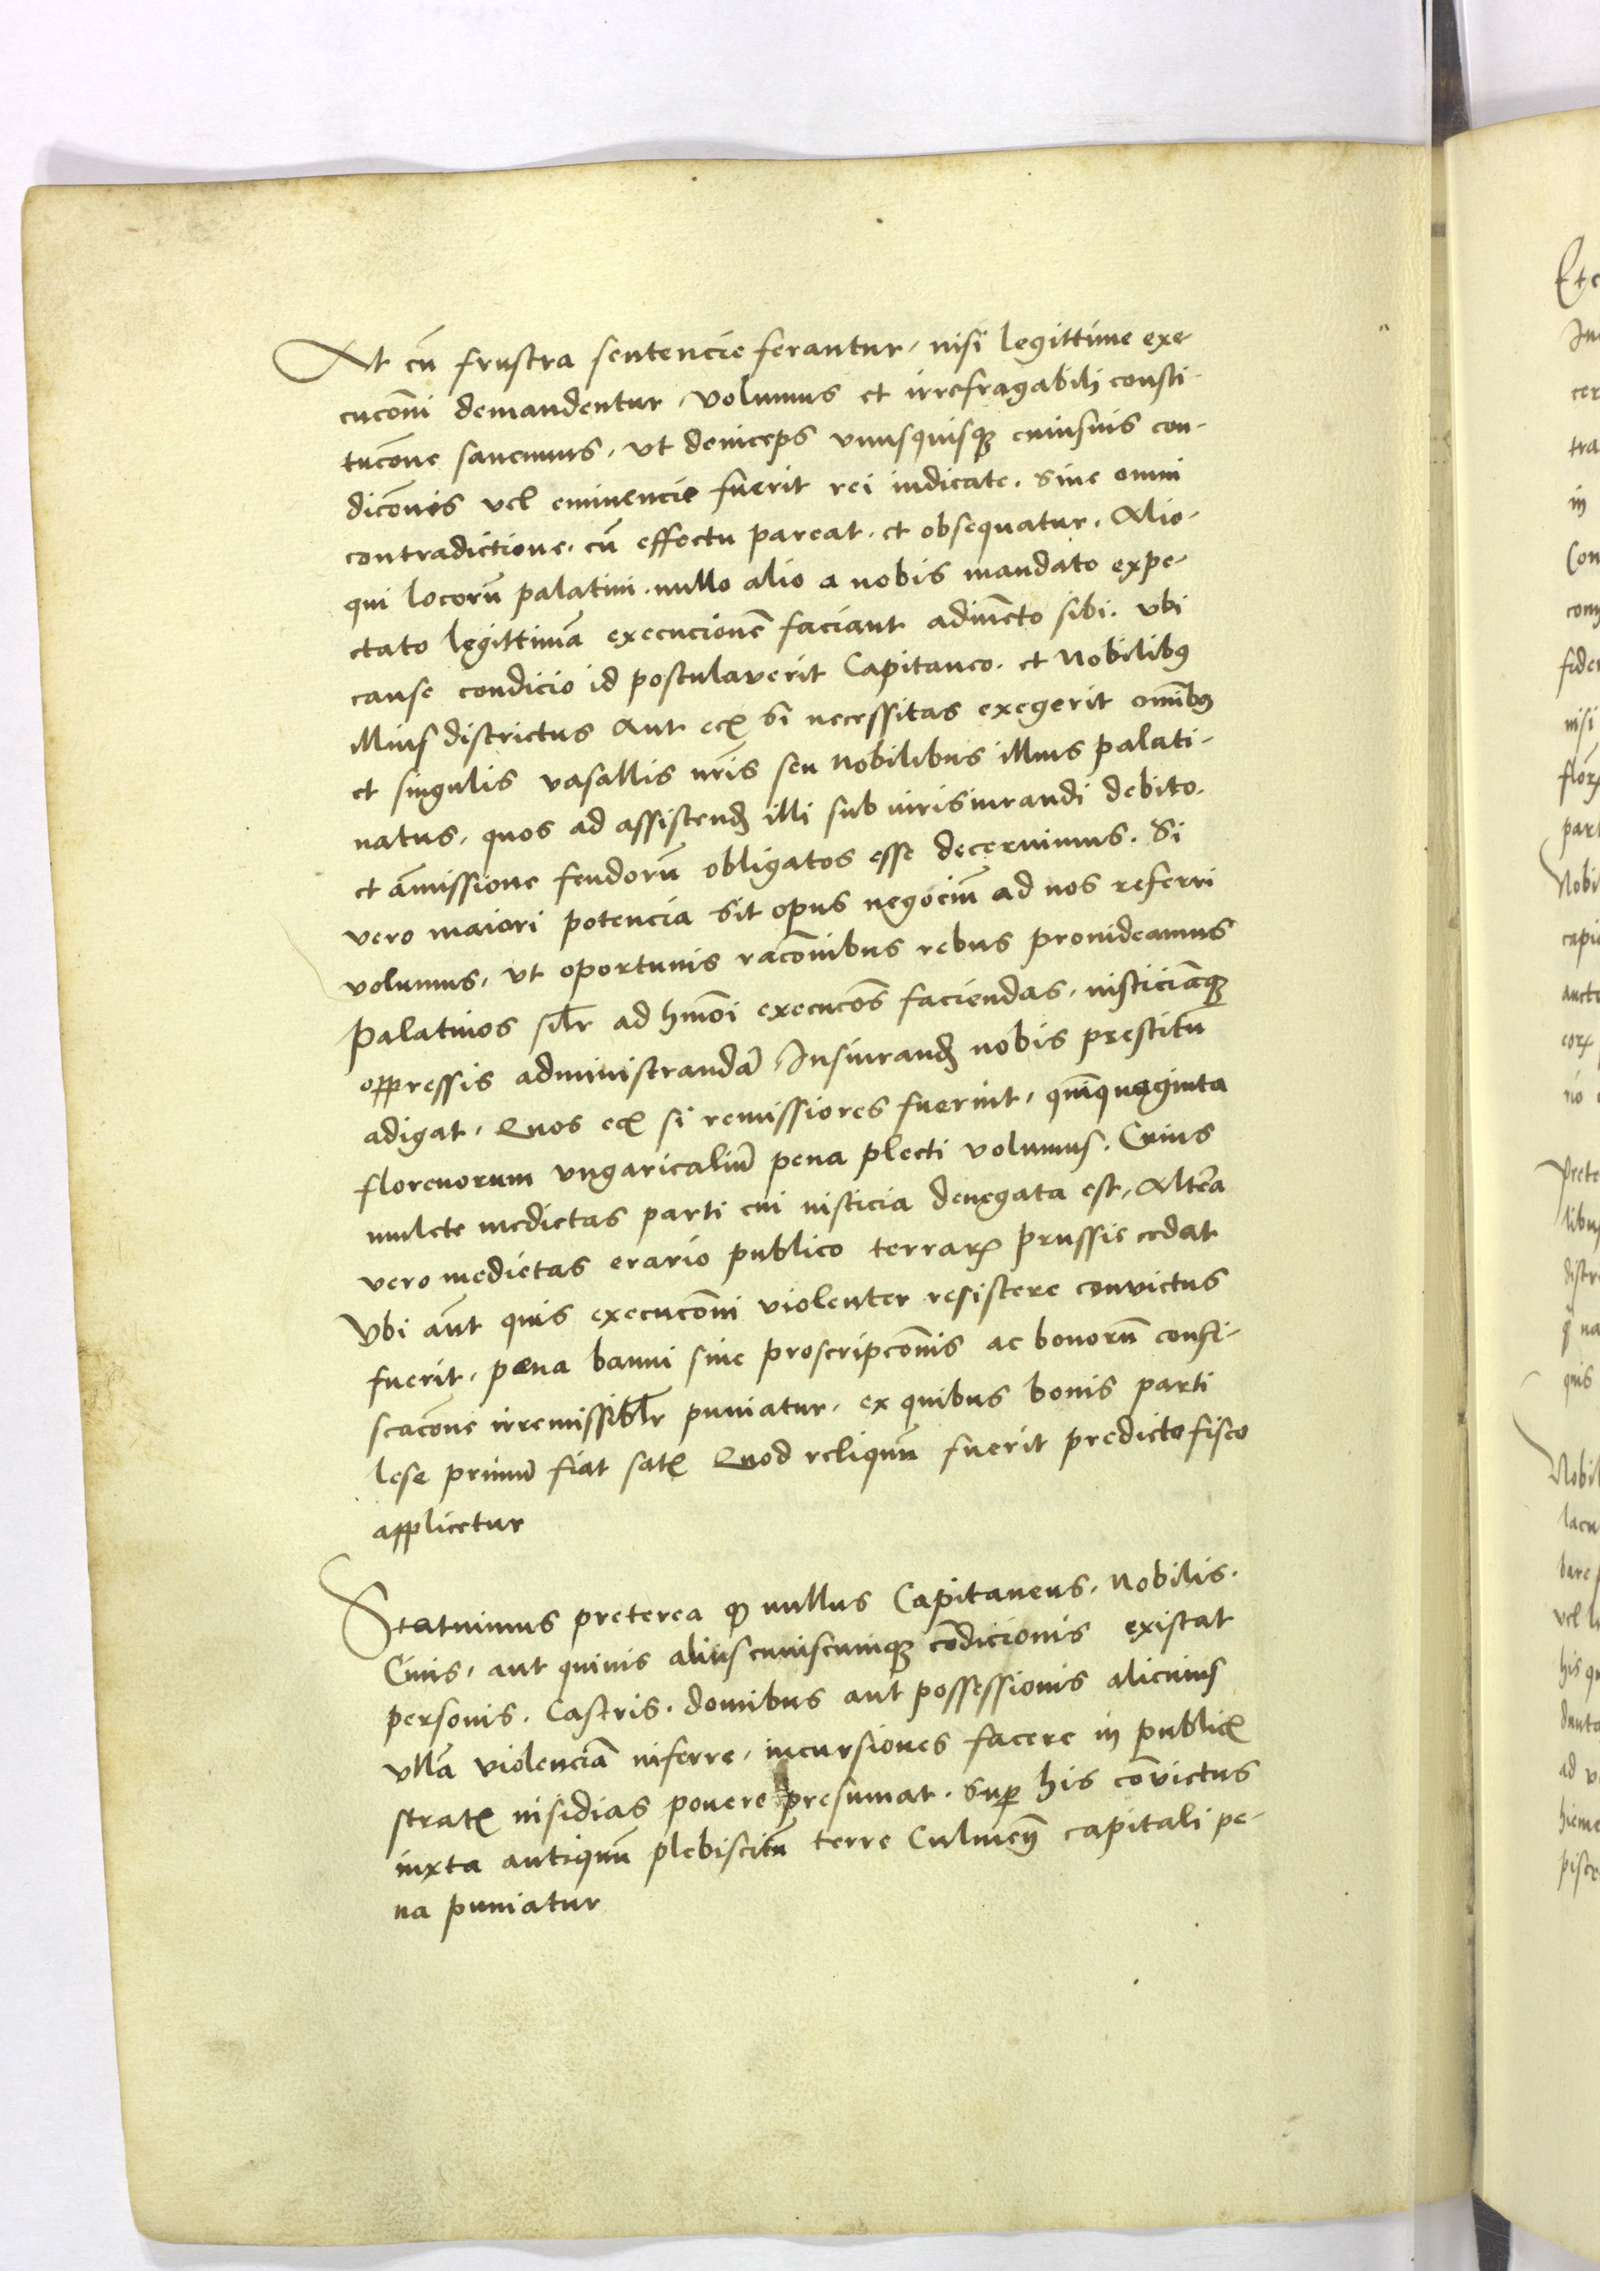 At cū frustra sentencie ferantur, nisi legittime exe-
cucōni demandentur, volumus et irrefragabili consti-
tucōne sancimus, ut deinceps unusquisqꝫ cuiusvis con-
dicōnis vel eminencie fuerit rei iudicate. sine omni
contradictione, cū effectu pareat, et obsequatur. Alio-
qui locorū palatini. nullo alio a nobis mandato expe-
ctato legittimā execucionē faciant adiūcto sibi. ubi
cause condicio id postulaverit Capitaneo. et Nobilibꝰ
illius districtus Aut eciā si necessitas exegerit oīnibꝰ
et singulis vasallis nr̄is seu Nobilibus illius palati-
natus, quos ad assistendū illi sub iurisiurandi debito.
et āmissione feudorū obligatos esse decernimus. Si
vero maiori potencia sit opus negociū ad nos referri
volumus, ut oportunis racōnibus rebus provideamus
Palatinos sīlr ad hmōi execucōes faciendas, iusticiāqꝫ
oppressis administrandā Iusiurandū nobis prestitū
adigat. Quos eciā si remissiores fuerint, quīquaginta
florenorum ungaricaliū pena plecti volumus. Cuius
mulcte medietas parti cui iusticia denegata est, Altera
vero medietas erario publico terrarꝫ prussie cedat
Ubi aūt quis execucōni violenter resistere convictus
fuerit, pena banni sive proscripcōnis ac bonorū confi-
scacōne irremissibīlr puniatur, ex quibus bonis parti
lese primū fiat satꝫ Quod reliquū fuerit predicto fisco
applicetur
Statuimus preterea ꝙ nullus Capitaneus, Nobilis.
Civis, aut quivis alius cuiuscunqꝫ cōdicionis existat
personis. Castris. domibus aut possessionis alicuius
ullā violenciā inferre, incursiones facere in publicꝫ
stratꝫ insidias ponere presumat. Suꝑ his cōvictus
iuxta antiquū plebiscitū terre Culmeñ capitali pe-
na puniatur